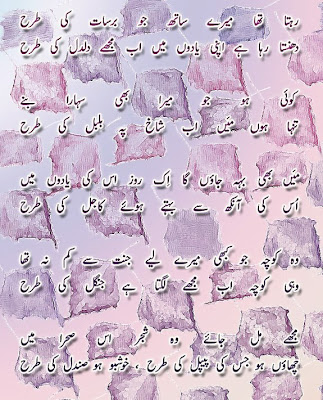 رہتا تھا میرے ساتھ جو برسات کی طرح
دھنستا رہا ہے اپنی یادوں میں اب مجھے دلدل کی طرح
کوئی ہو جو میرا بھی سہارا بنے
تنہا ہوں مئیں اب شاخ پہ بلبل کی طرح
مئیں بھی بہہ جاؤں گا اک روز اس کی یادوں میں
اُس کی آنکھ سے بہتے ہوئے کاجل کی طرح
وہ کوچہ جو کبھی میرے لیے جنت سے کم نہ تھا
وہی کوچہ اب مجھے لگتا ہے جنگل کی طرح
مجھے مل جائے وہ شجر اس صحرا میں
چھاؤں ہو جس کی پیپل کی طرح ، خوشبو ہو صندل کی طرح